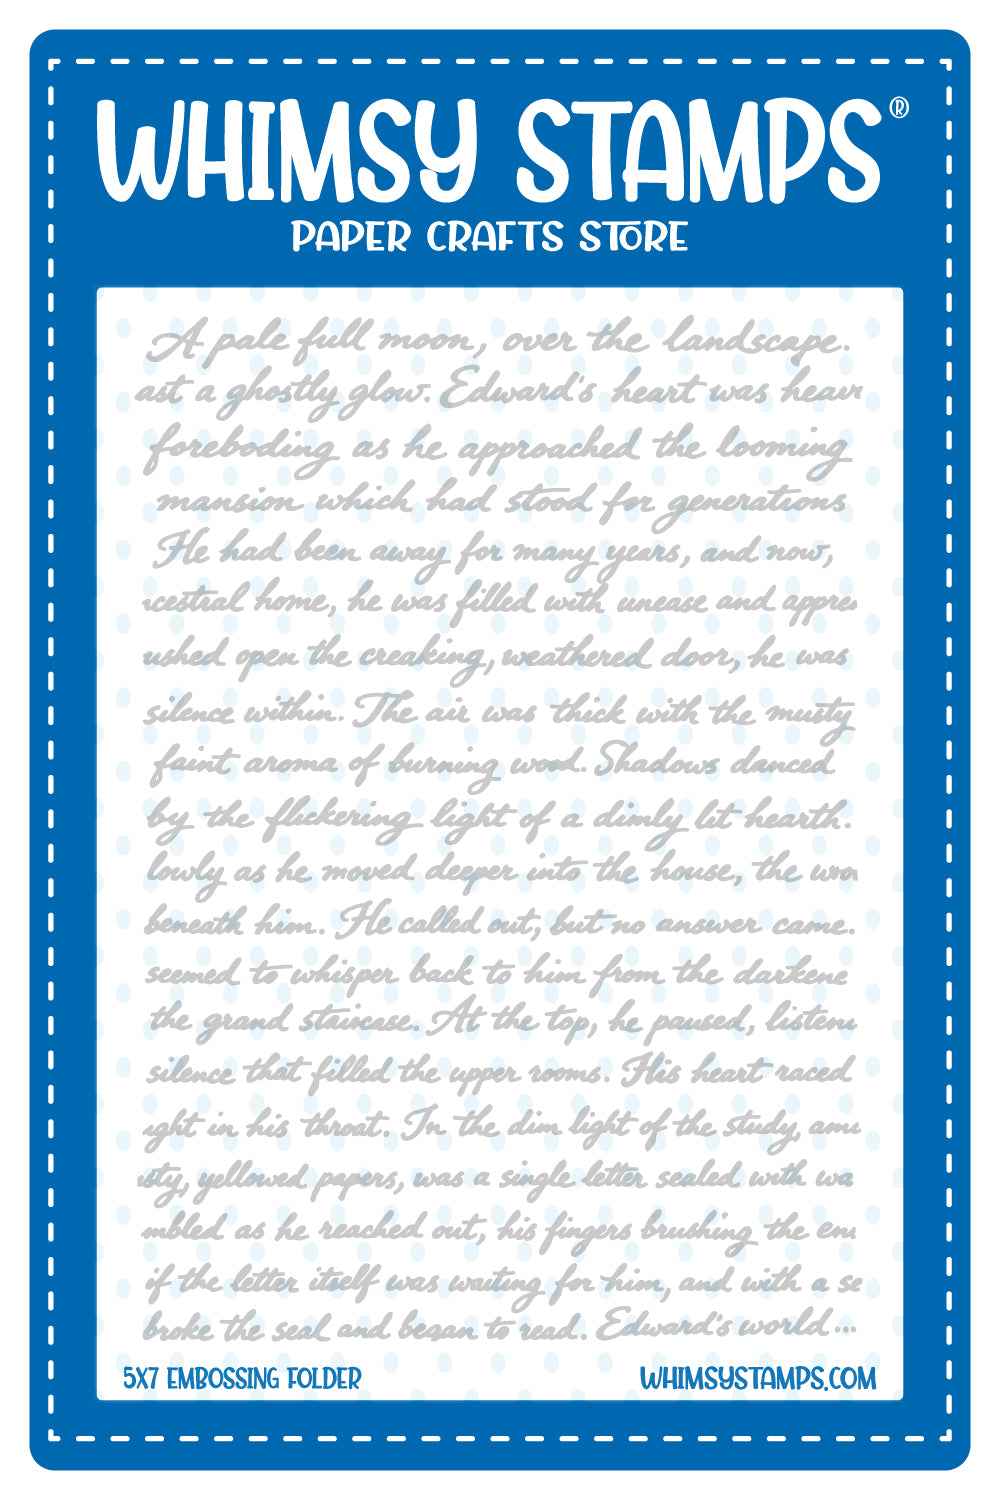 WHIMSY STAMPS®
PAPER CRAFTS STORE
A pale full moon, over the landscape.
ast a ghostly glow. Edward's heart was heav
foreboding as he approached the looming
mansion which had stood for generations
He had been away for many years, and now,
ncestral home, he was filled with unease and appre
ushed open the creaking, weathered door, he was
silence within. The air was thick with the musty
faint aroma of burning wood. Shadows danced
by the flickering light of a dimly lit hearth.
lowly as he moved deeper into the house, the woo
beneath him. He called out, but no answer came.
seemed to whisper back to him from the darkene
the grand staircase. At the top, he paused, listeni
silence that filled the upper rooms. His heart raced
ught in his throat. In the dim light of the study, amu
sty, yellowed papers, was a single letter sealed with wa
mbled as he reached out, his fingers brushing the env
if the letter itself was waiting for him, and with a se
broke the seal and began to read. Edward's world...
5X7 EMBOSSING FOLDER
WHIMSYSTAMPS.COM